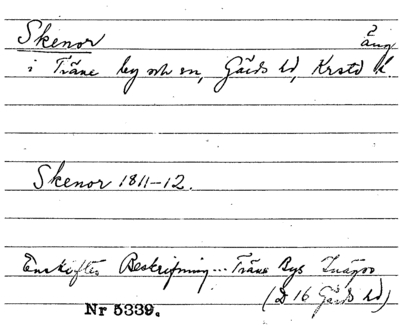 Skenor äng
i Träne by och sn, Gärds hd, Krstd l
Skenor 1811-12.
Enskiftes Beskrifning... Träne Bys
(D 16 Gärds hd)
Nr 5339.